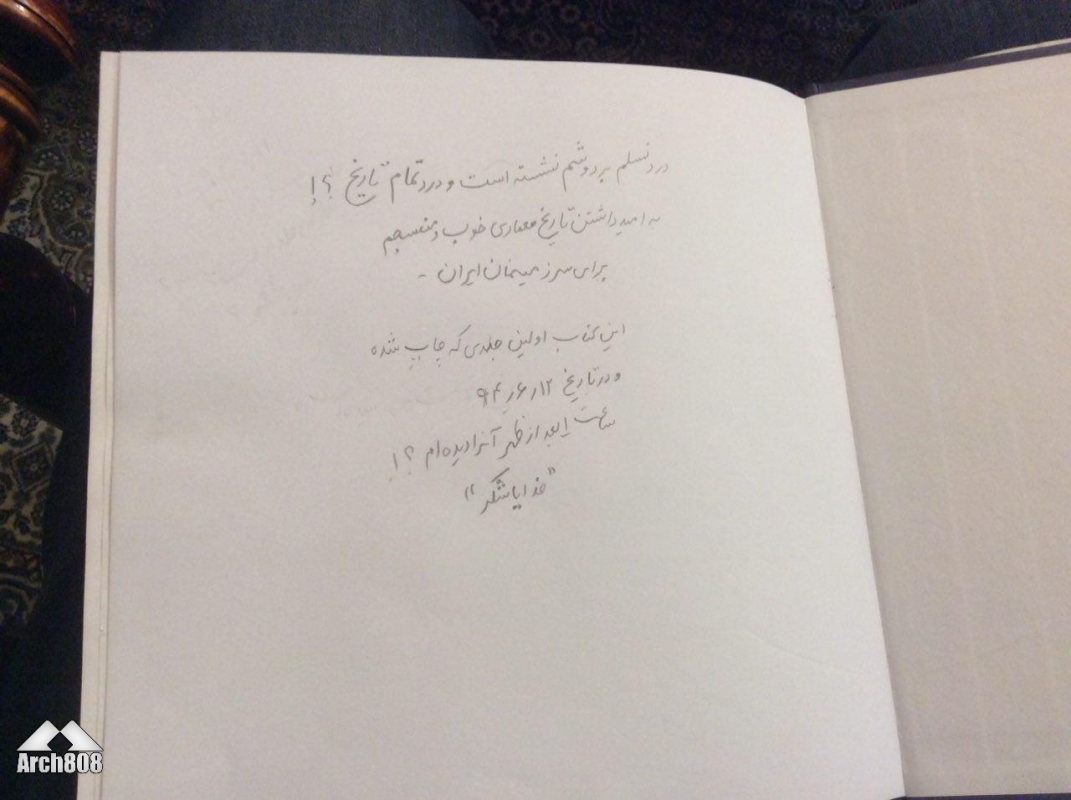 درد نسلم بر دوشم نشسته است و درد تمام تاریخ ؟!
به امید داشتن تاریخ معماری خوب و منسجم
برای سرزمینمان ایران -
این کتاب اولین جلدی که چاپ شده
و در تاریخ ۹۴٫۶٫۱۲
ساعت ۱ بعد از ظهر آنرا دیده‌ام ؟!
"خدایا شکر"
Arch808